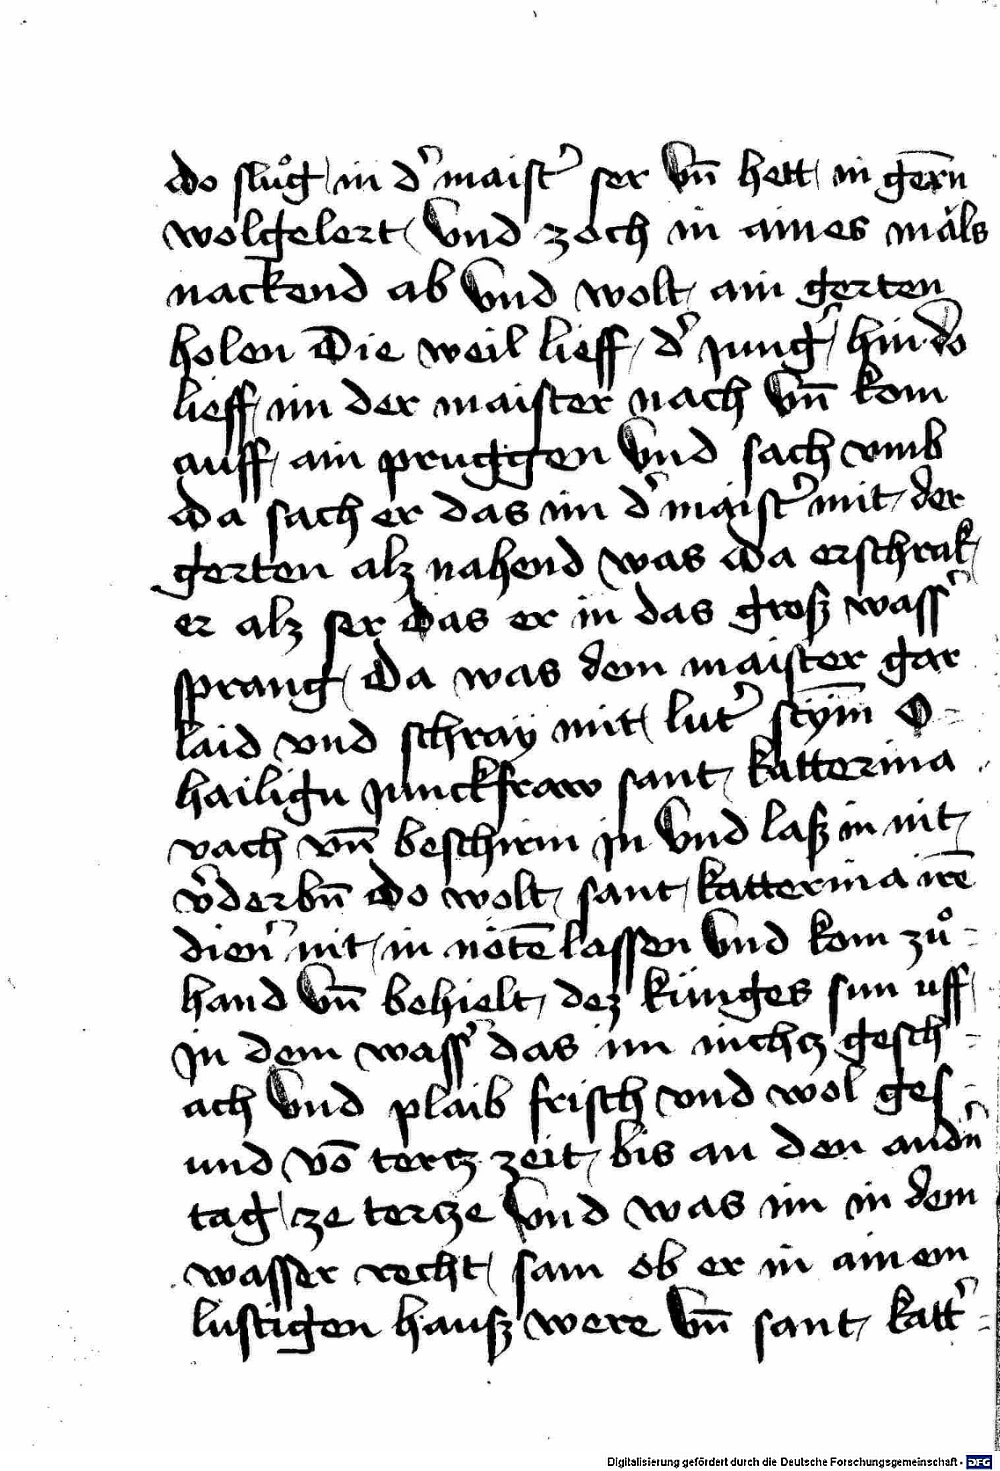 Do slůg in d' maist' ser vn̄ hett in ger̄n
wolgelert Vnd zoch in aines mǎls
nackend ab Vnd wolt ain gerten
holen Die weil lieff d' jung' hin do
lieff im der maister nach vn̄ kom
auff ain pruggen Vnd sach vmb
Da sach er das im d' maist' mit der
gerten alz nahend was Da erschrak
er alz ser Das er in das groß wass'
sprang Da was dem maister gar
laid vnd schray mit lut' stȳm O =
hailigu junckfraw sant katterina
vach vn̄ beschirm jn Vnd laß in nit
v'derbn̄ Do wolt sant katterina irē
dien' nit in nötē lassen Vnd kom zů =
hand Vn̄ behielt dez künges sun uff
jn dem wass' das im nichcz gesch =
ach Vnd plaib frisch vnd wol ges =
und vō tercz zeit bis an den and'n
tag ze tercze Vnd was im in dem
wasser recht sam ob er in ainem
lustigen hauß were Vn̄ sant katt' =
Digitalisierung gefördert durch die Deutsche Forschungsgemeinschaft - DFG